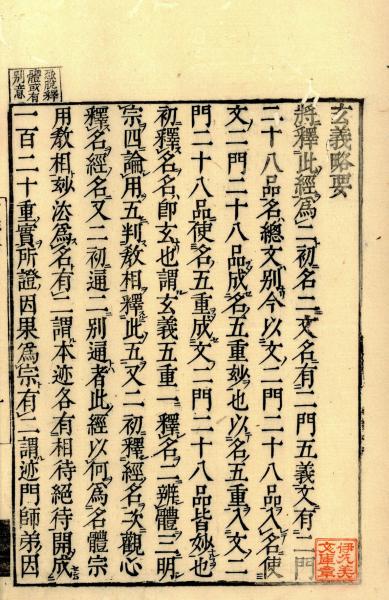 玄義略要
將釋此經爲二初名二文名有二門五義文有二門
二十八品名總文別今以文二門二十八品入名使
文二門二十八品成名五重妙也以名五重入文二
門二十八品使名五重成文二門二十八品皆妙也
初釋名名卽玄也謂玄義五重一釋名二辨體三明
宗四論用五判敎相釋此五又二初釋經名次觀心
釋名經名又二初通二別通者此經以何爲名體宗
用敎相妙法爲名有二謂本迹各有相待絕待開成
一百二十重實所證因果爲宗有二謂迹門師弟因
體或有
別意
伊九美
文庫章